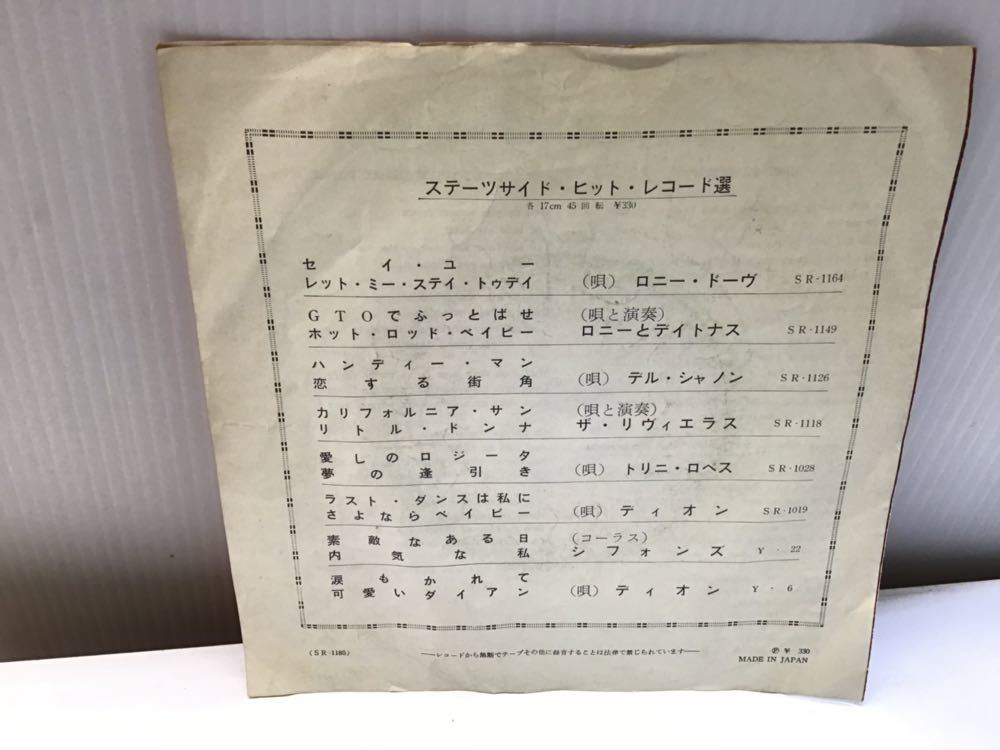 ステーツサイド・ヒット・レコード選
各17cm 45回転 ¥330
セイ・ユー
レット・ミー・ステイ・トゥデイ (唄) ロニー・ドーヴ SR-1164
GTOでふっとばせ (唄と演奏)
ホット・ロッド・ベイビー ロニーとデイトナス SR-1149
ハンディー・マン
恋する街角 (唄) デル・シャノン SR-1126
カリフォルニア・サン (唄と演奏)
リトル・ドンナ ザ・リヴィエラス SR-1118
愛しのロジータ
夢の逢引き (唄) トリニ・ロペス SR-1028
ラスト・ダンスは私に
さよならベイビー (唄) ディオン SR-1019
素敵なある日 (コーラス)
内気な私 シフォンズ Y-22
涙もかれて
可愛いダイアン (唄) ディオン Y-6
(SR-1180) ──レコードから無断でテープその他に録音することは法律で禁じられています── Ⓟ ¥ 330
MADE IN JAPAN